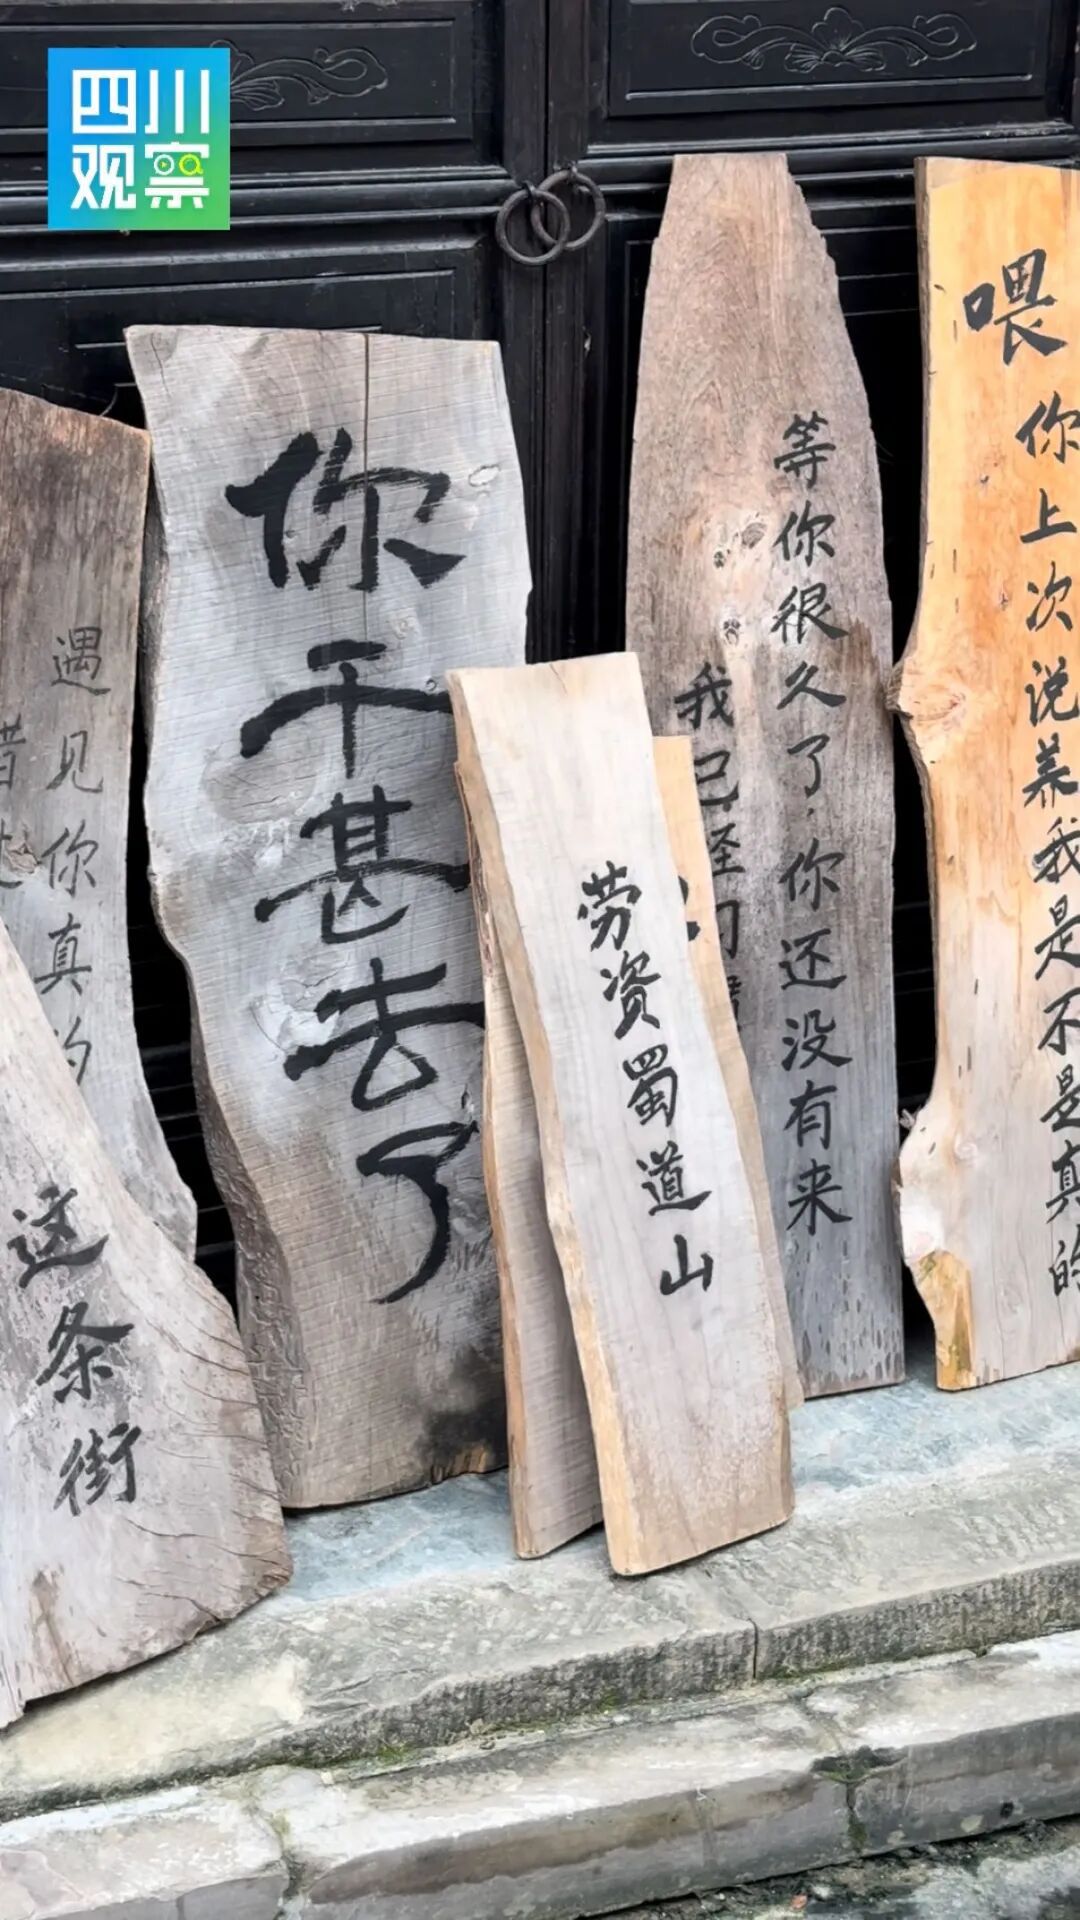 四川
观察
遇见你真的
惜
这条街
你干甚去了
劳资蜀道山
等你很久了，你还没有来
我已经
喂
你上次说养我是不是真的